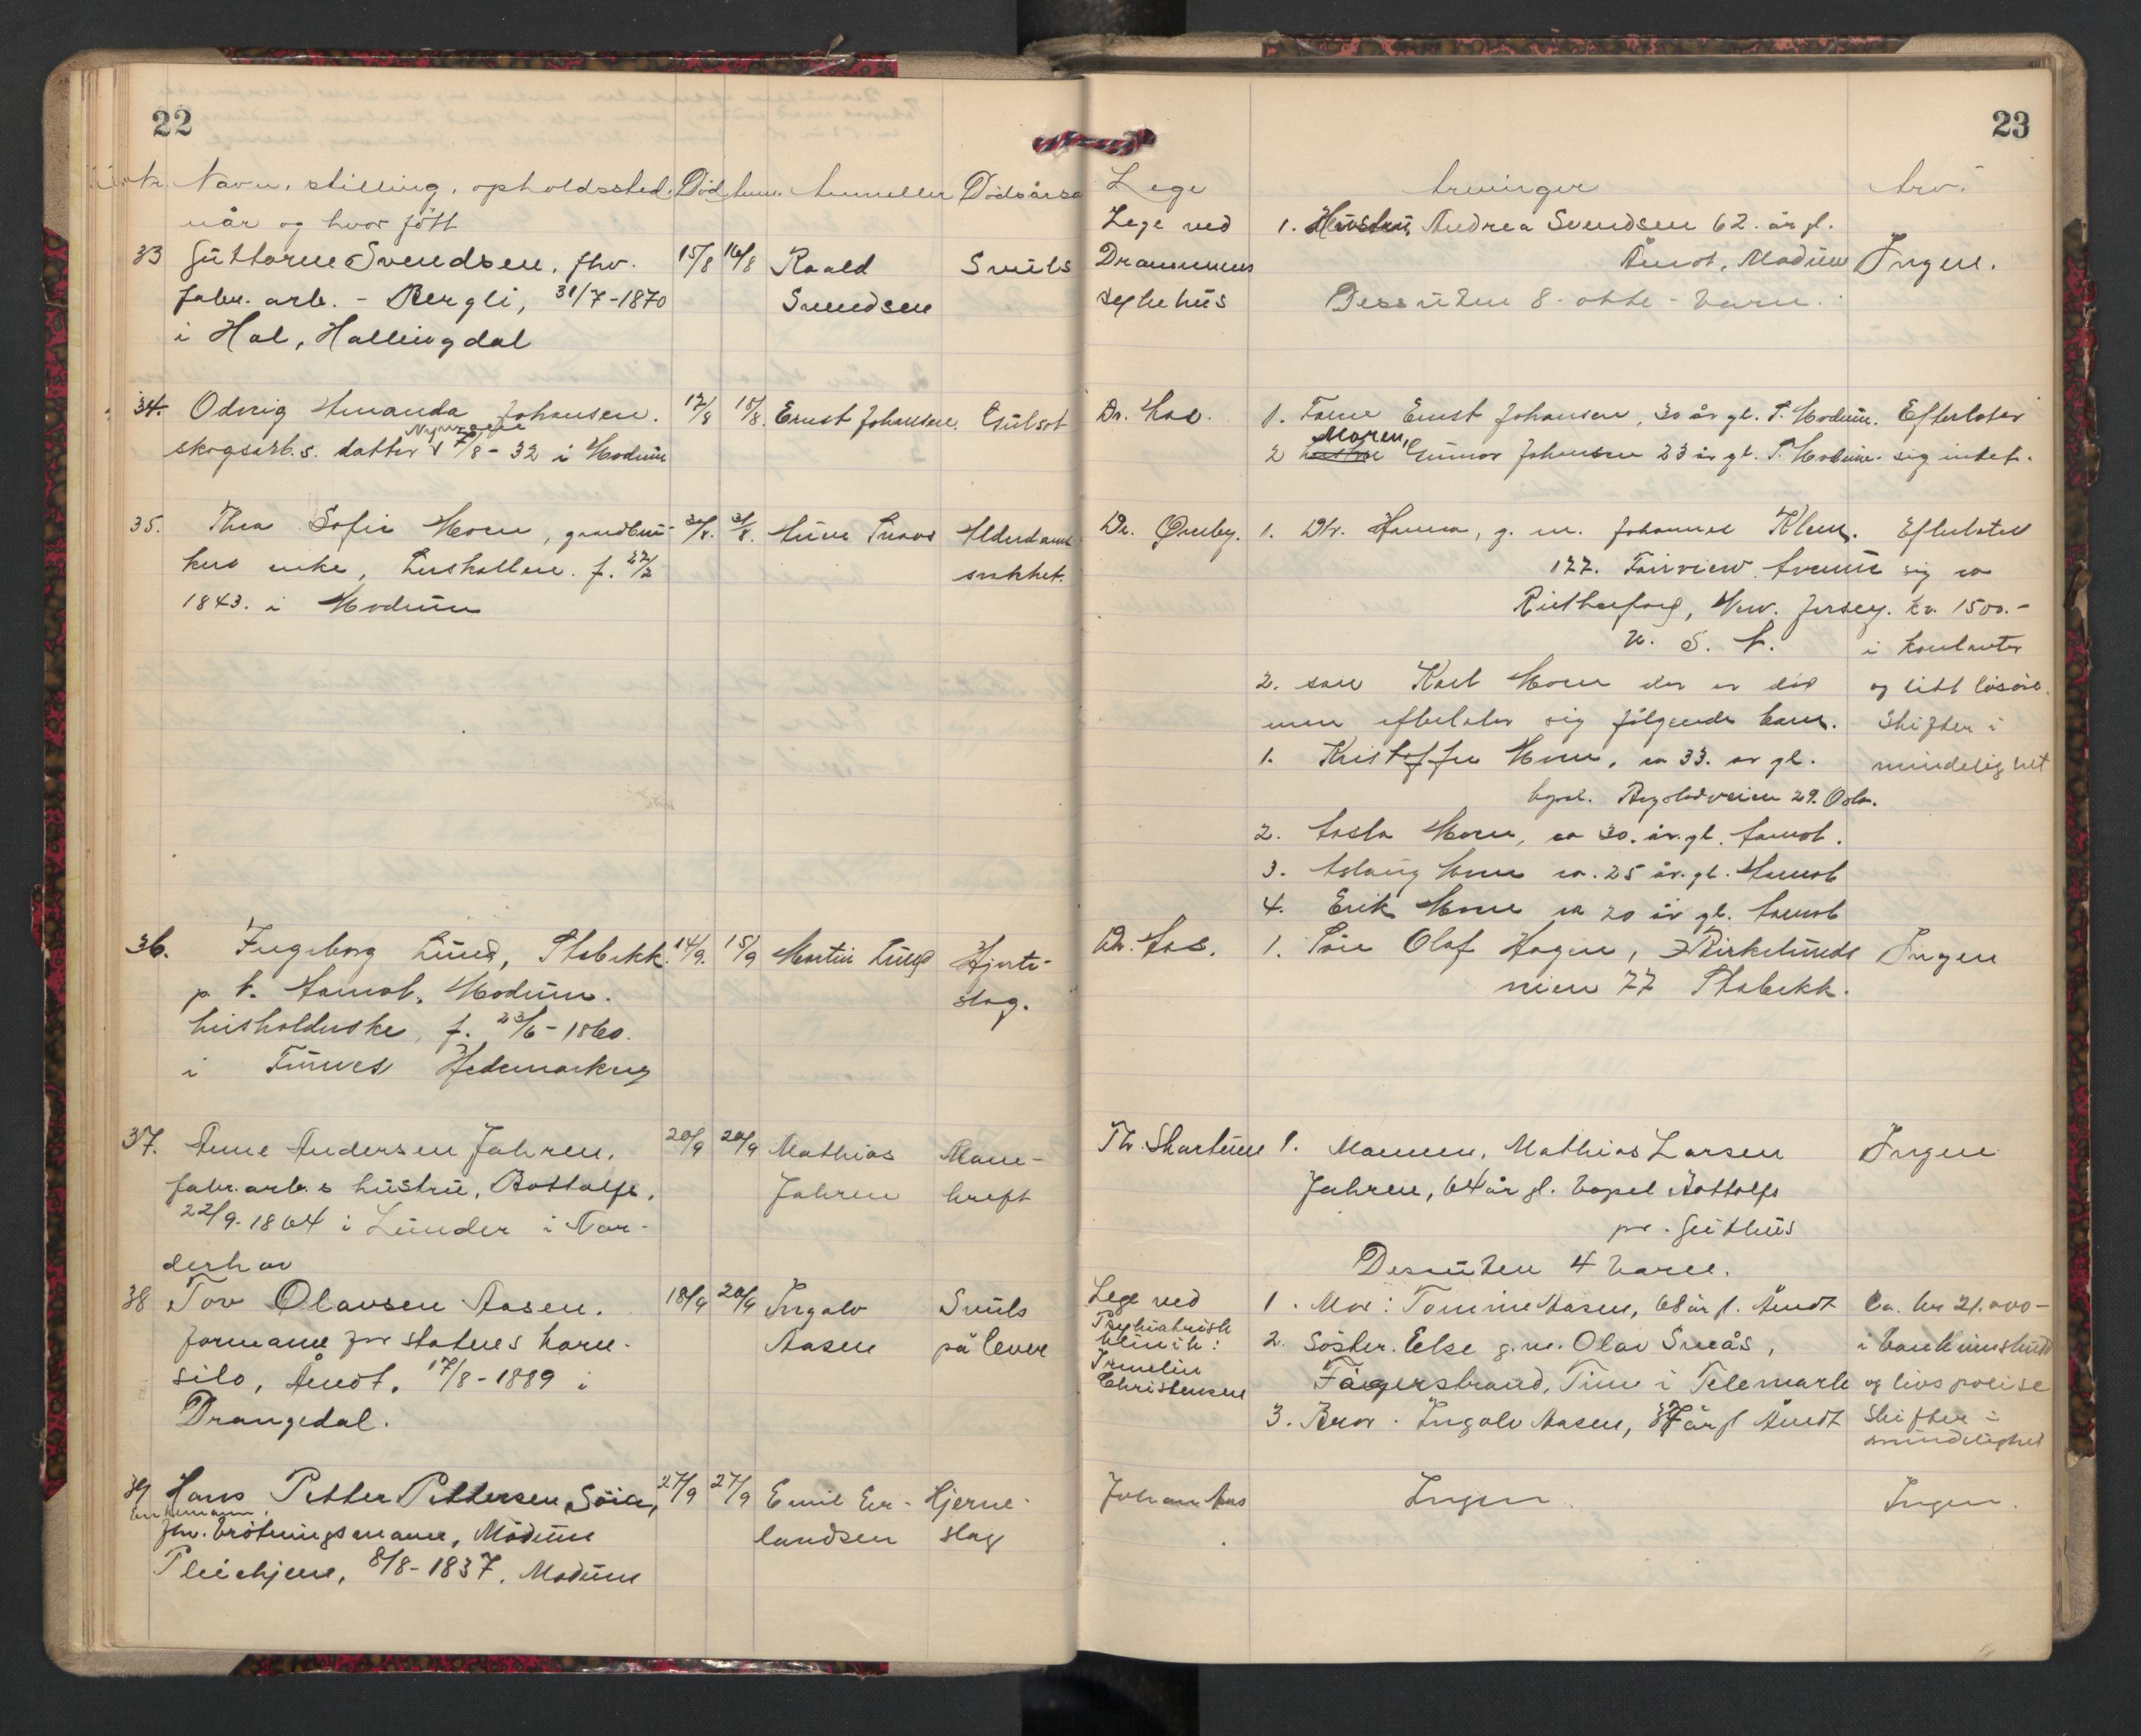 22
Nr. Navn, stilling, opholdssted. Död Anm. Anmelder Dödsårsa
når og hvor fött
33 Guttorm Svendsen, fhv. 15/8 16/8 Roald Svuls
fabr. arb. - Bergli, 31/7-1870 Svendsen
i Hol, Hallingdal
34. Odveig Amanda Johansen. 17/8 18/8. Ernst Johansen. Gulsot
skogsarb.s. datter i Modum
35. Thea Sofie Moen, gaardbru- Alderdoms
kers enke, f. 27/2 svakhet.
1843. i Modum
36. Ingeborg Lund, Stabekk. 14/9. 15/9 Martin Lund Hjerte-
p. t. Aamot, Modum. slag.
husholderske, f. 23/6-1860.
i Furnes Hedemarken
37. Anne Andersen Jahren, 20/9 20/9 Mathias Mave-
fabr. arb.s hustru, Bottolfs, Jahren kreft
22/9-1864 i Lunder i Nor-
derhov
38 Tov Olavsen Aasen. 18/9 20/9 Ingolv Svuls
formann for statens korn- Aasen på lever
silo, Åmot, 17/8-1889 i
Drangedal.
39 Hans Petter Pettersen 27/9 27/9 Emil Er- Hjerne-
Enkemann,
fhv. brötningsmann, Modum landsen slag
Pleiehjem, 8/8-1837, Modum
23
Lege Arvinger Arv.
Lege ved 1. Hustru, Andrea Svendsen 62. år gl.
Drammens Åmot, Modum Ingen.
sykehus Dessuten 8-otte-barn.
Dr. Aas. 1. Faren Ernst Johansen, 30 år gl. S. Modum. Efterlater
Moren,
2 Gunvor Johansen 23 år gl. S. Modum. sig intet.
Dr. 1. Dtr. Hanna, g. m. Johannes Klem. Efterlater
177. Fairview Avenue sig ca
Rutherford, New. Jersey. kr. 1500.-
U. S. A. i kontanter
2. sön Karl Moen der er död og litt lösöre.
men efterlater sig fölgende barn. Skifter i
1. Kristoffer Moen, ca 33. år gl. mindelighet
bopel. 29. Oslo.
2. Aasta Moen, ca 30. år. gl. Aamot.
3. Aslaug Moen ca. 25 år. gl. Aamot
4. Erik Moen ca 20 år gl. Aamot
Dr. Aas. 1. Sön Olaf Hagen, Kirkelunds Ingen
veien 77 Stabekk.
Th. Skartum 1. Mannen, Mathias Larsen Ingen
Jahren, 64 år gl. bopel Bottolfs
pr. Geithus
Dessuten 4 barn.
Lege ved 1. Mor: Tomine Aasen, 68 år gl. Åmot Ca. kr 21.000-
Psykiatrisk
klinik: 2. Söster. Else g.m. Olav Sneås, i bankinnskudd
Irmelin
Christensen Fagerstrand, Tinn i Telemark og livspolise
3. Bror. Ingolv Aasen, år gl Åmot Skifter i
mindelighet
Johan Aas Ingen Ingen.